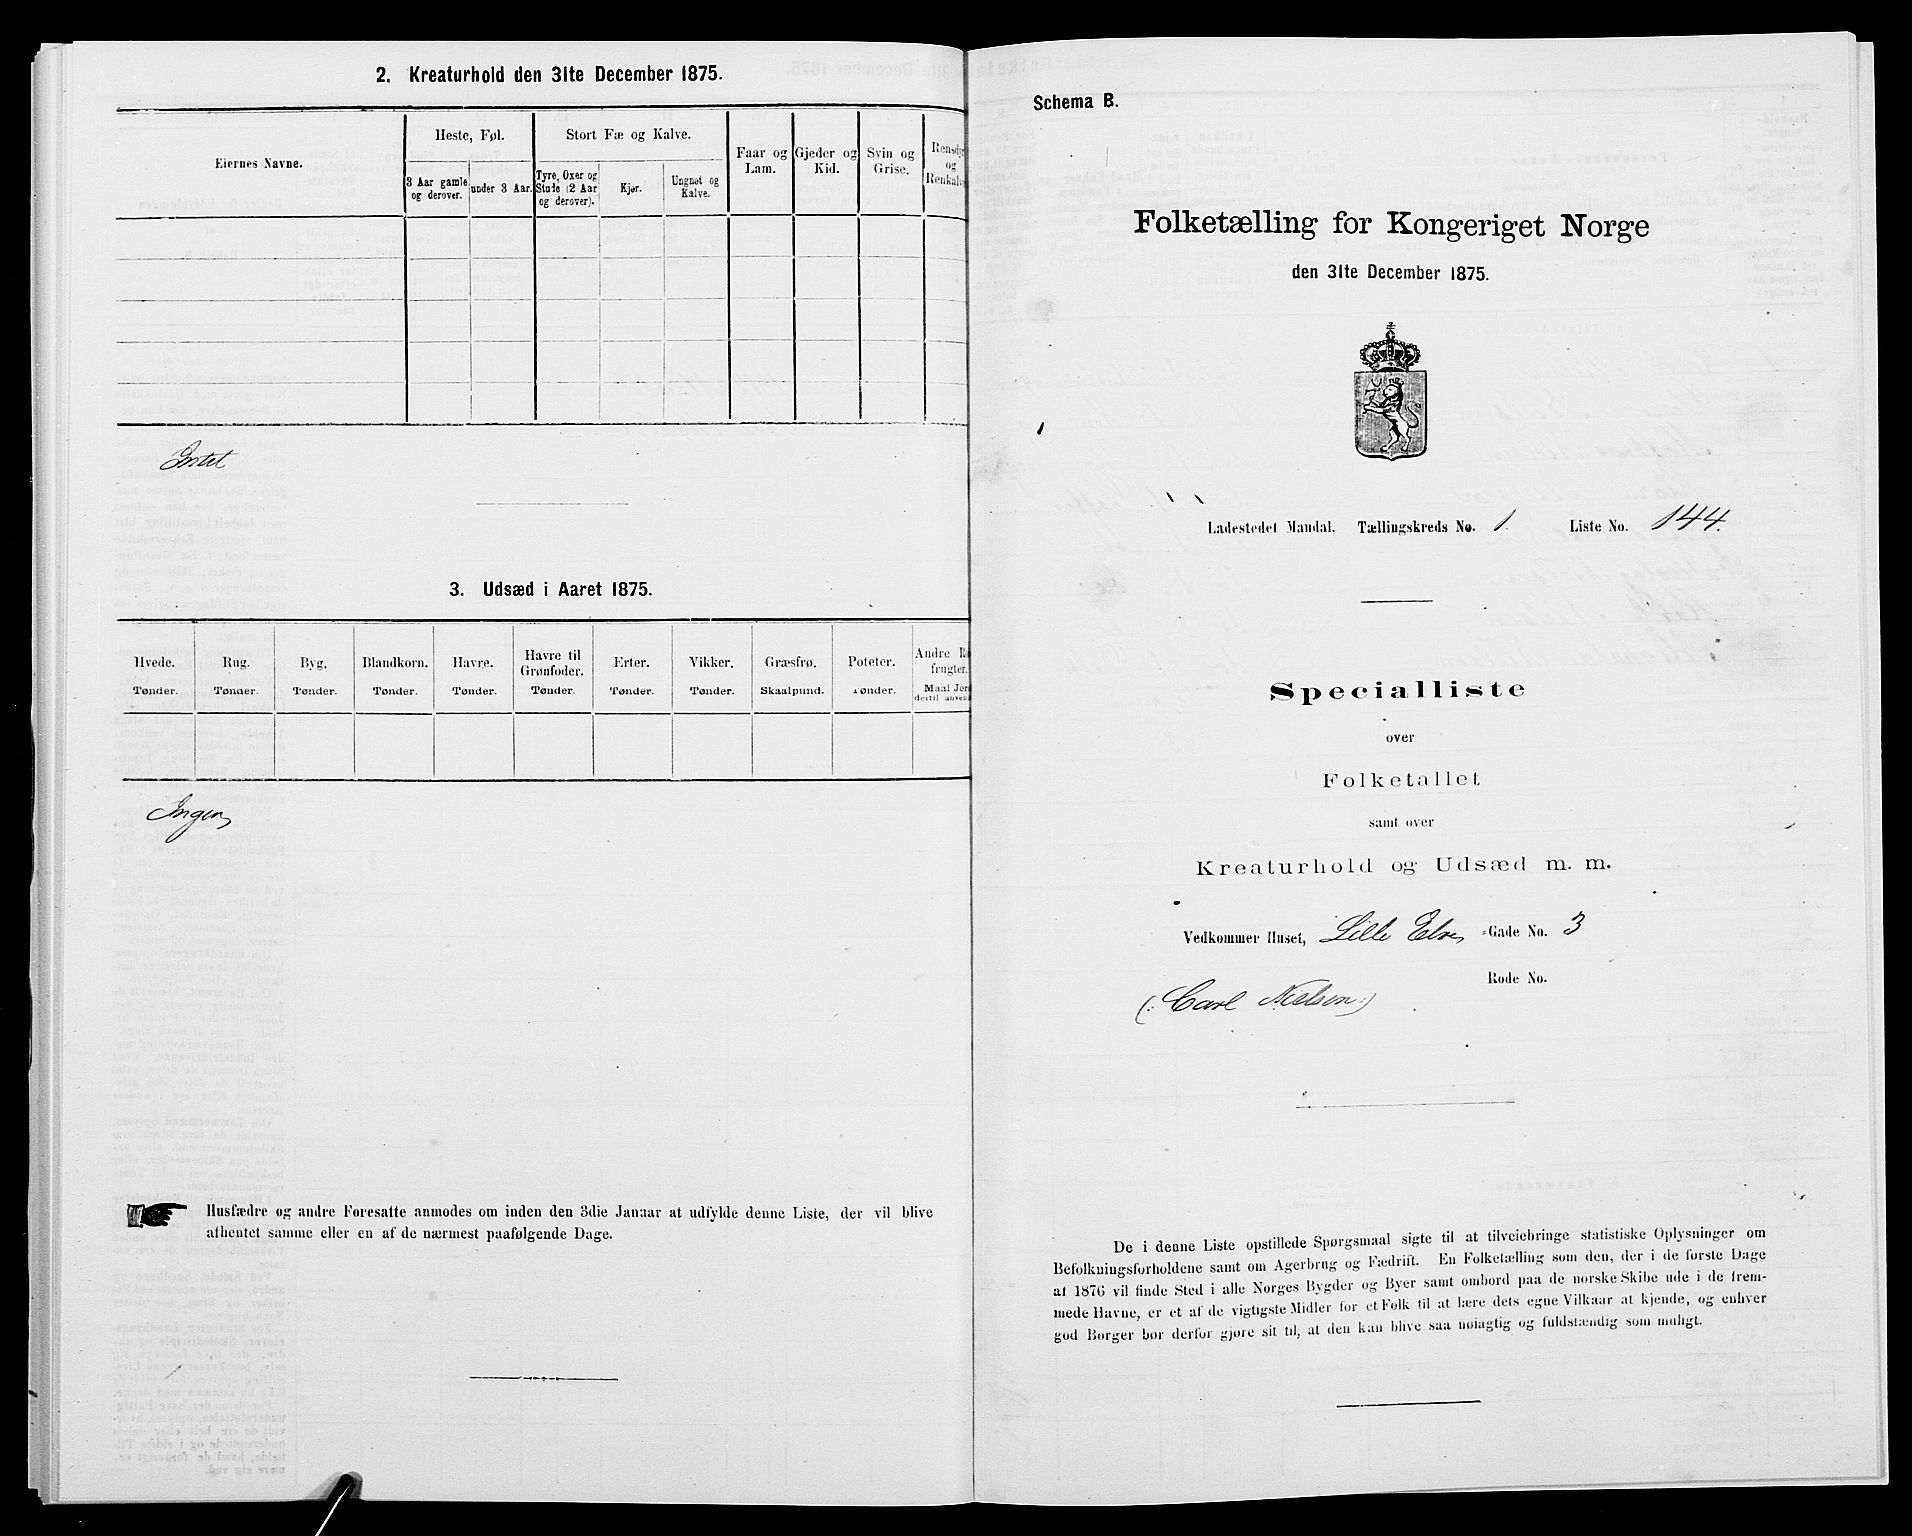 2. Kreaturhold den 31te December 1875.
Eiernes Navne.
Heste, Føl.
Stort Fæ og Kalve.
3 Aar gamle og derover.
under 3 Aar.
Tyre, Oxer og Stude (2 Aar og derover).
Kjør.
Ungnøt og Kalve.
Faar og Lam.
Gjeder og Kid.
Svin og Grise.
Rensdyr og Renkalve
Intet
3. Udsæd i Aaret 1875.
Hvede. Rug. Byg. Blandkorn. Havre. Havre til Grønfoder. Erter. Vikker. Græsfrø. Poteter. Andre Ro frugter.
Tønder. Tønder. Tønder. Tønder. Tønder. Tønder. Tønder. Tønder. Skaalpund. Tønder. Maal Jord dertil anvendt
Ingen
Husfædre og andre Foresatte anmodes om inden den 3die Januar at udfylde denne Liste, der vil blive
afhentet samme eller en af de nærmest paafølgende Dage.
Schema B.
Folketælling for Kongeriget Norge
den 31te December 1875.
Ladestedet Mandal. Tællingskreds No. 1. Liste No. 144.
Specialliste
over
Folketallet
samt over
Kreaturhold og Udsæd m. m.
Vedkommer Huset, Lille Elve -Gade No. 3
Rode No.
(: Carl Nielsen :)
De i denne Liste opstillede Spørgsmaal sigte til at tilveiebringe statistiske Oplysninger om
Befolkningsforholdene samt om Agerbrug og Fædrift. En Folketælling som den, der i de første Dage
af 1876 vil finde Sted i alle Norges Bygder og Byer samt ombord paa de norske Skibe ude i de frem-
mede Havne, er et af de vigtigste Midler for et Folk til at lære dets egne Vilkaar at kjende, og enhver
god Borger bør derfor gjøre sit til, at den kan blive saa nøiagtig og fuldstændig som muligt.